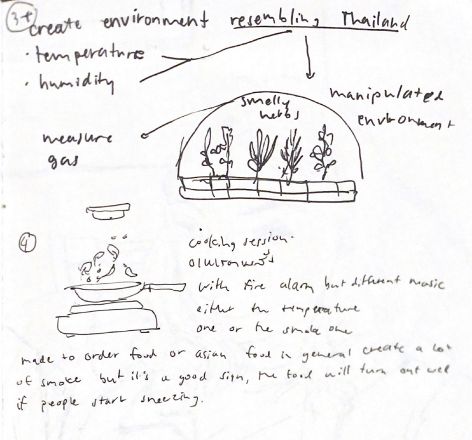 3+
create environment resembling Thailand
· temperature
· humidity
manipulated
environment
smelly
herbs
measure
gas
4
cooking session.
with fire alarm but different music
either the temperature
one or the smoke one
made to order food or asian food in general create a lot
of smoke but it's a good sign, the food will turn out well
if people start sneezing.